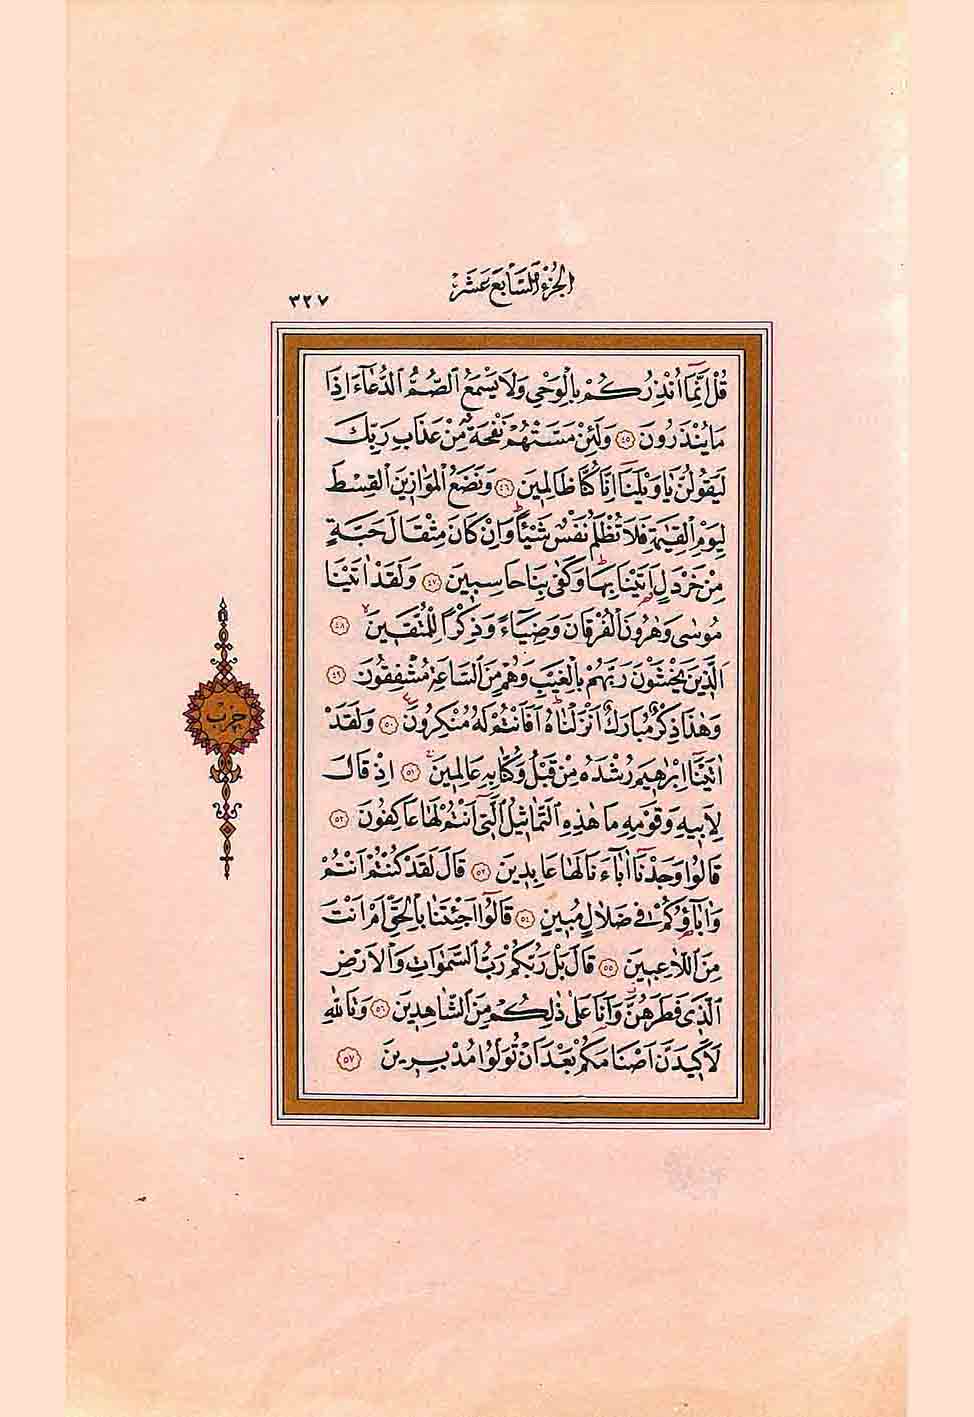 الجزء السابع عشر
٣٢٧
قُلْ اِنَّمَٓا اُنْذِرُكُمْ بِالْوَحْيِ وَلَا يَسْمَعُ الصُّمُّ الدُّعَٓاءَ اِذَا
مَا يُنْذَرُونَ ﴿٤٥﴾ وَلَئِنْ مَسَّتْهُمْ نَفْحَةٌ مِنْ عَذَابِ رَبِّكَ
لَيَقُولُنَّ يَا وَيْلَنَٓا اِنَّا كُنَّا ظَالِمِينَ ﴿٤٦﴾ وَنَضَعُ الْمَوَازِينَ الْقِسْطَ
لِيَوْمِ الْقِيٰمَةِ فَلَا تُظْلَمُ نَفْسٌ شَيْـًٔا وَاِنْ كَانَ مِثْقَالَ حَبَّةٍ
مِنْ خَرْدَلٍ اَتَيْنَا بِهَا وَكَفٰى بِنَا حَاسِبِينَ ﴿٤٧﴾ وَلَقَدْ اٰتَيْنَا
مُوسٰى وَهٰرُونَ الْفُرْقَانَ وَضِيَٓاءً وَذِكْرًا لِلْمُتَّقِينَ ﴿٤٨﴾
اَلَّذِينَ يَخْشَوْنَ رَبَّهُمْ بِالْغَيْبِ وَهُمْ مِنَ السَّاعَةِ مُشْفِقُونَ ﴿٤٩﴾
وَهٰذَا ذِكْرٌ مُبَارَكٌ اَنْزَلْنَاهُ اَفَاَنْتُمْ لَهُ مُنْكِرُونَ ﴿٥٠﴾ وَلَقَدْ
اٰتَيْنَٓا اِبْرٰهِيمَ رُشْدَهُ مِنْ قَبْلُ وَكُنَّا بِهِ عَالِمِينَ ﴿٥١﴾ اِذْ قَالَ
لِاَبِيهِ وَقَوْمِهِ مَا هٰذِهِ التَّمَاثِيلُ الَّتِٓي اَنْتُمْ لَهَا عَاكِفُونَ ﴿٥٢﴾
قَالُوا وَجَدْنَٓا اٰبَٓاءَنَا لَهَا عَابِدِينَ ﴿٥٣﴾ قَالَ لَقَدْ كُنْتُمْ اَنْتُمْ
وَاٰبَٓاؤُ۬كُمْ فِي ضَلَالٍ مُبِينٍ ﴿٥٤﴾ قَالُٓوا اَجِئْتَنَا بِالْحَقِّ اَمْ اَنْتَ
مِنَ اللَّاعِبِينَ ﴿٥٥﴾ قَالَ بَلْ رَبُّكُمْ رَبُّ السَّمٰوَاتِ وَالْاَرْضِ
الَّذِي فَطَرَهُنَّ وَاَنَا عَلٰى ذٰلِكُمْ مِنَ الشَّاهِدِينَ ﴿٥٦﴾ وَتَاللّٰهِ
لَاَكِيدَنَّ اَصْنَامَكُمْ بَعْدَ اَنْ تُوَلُّوا مُدْبِرِينَ ﴿٥٧﴾
حزب